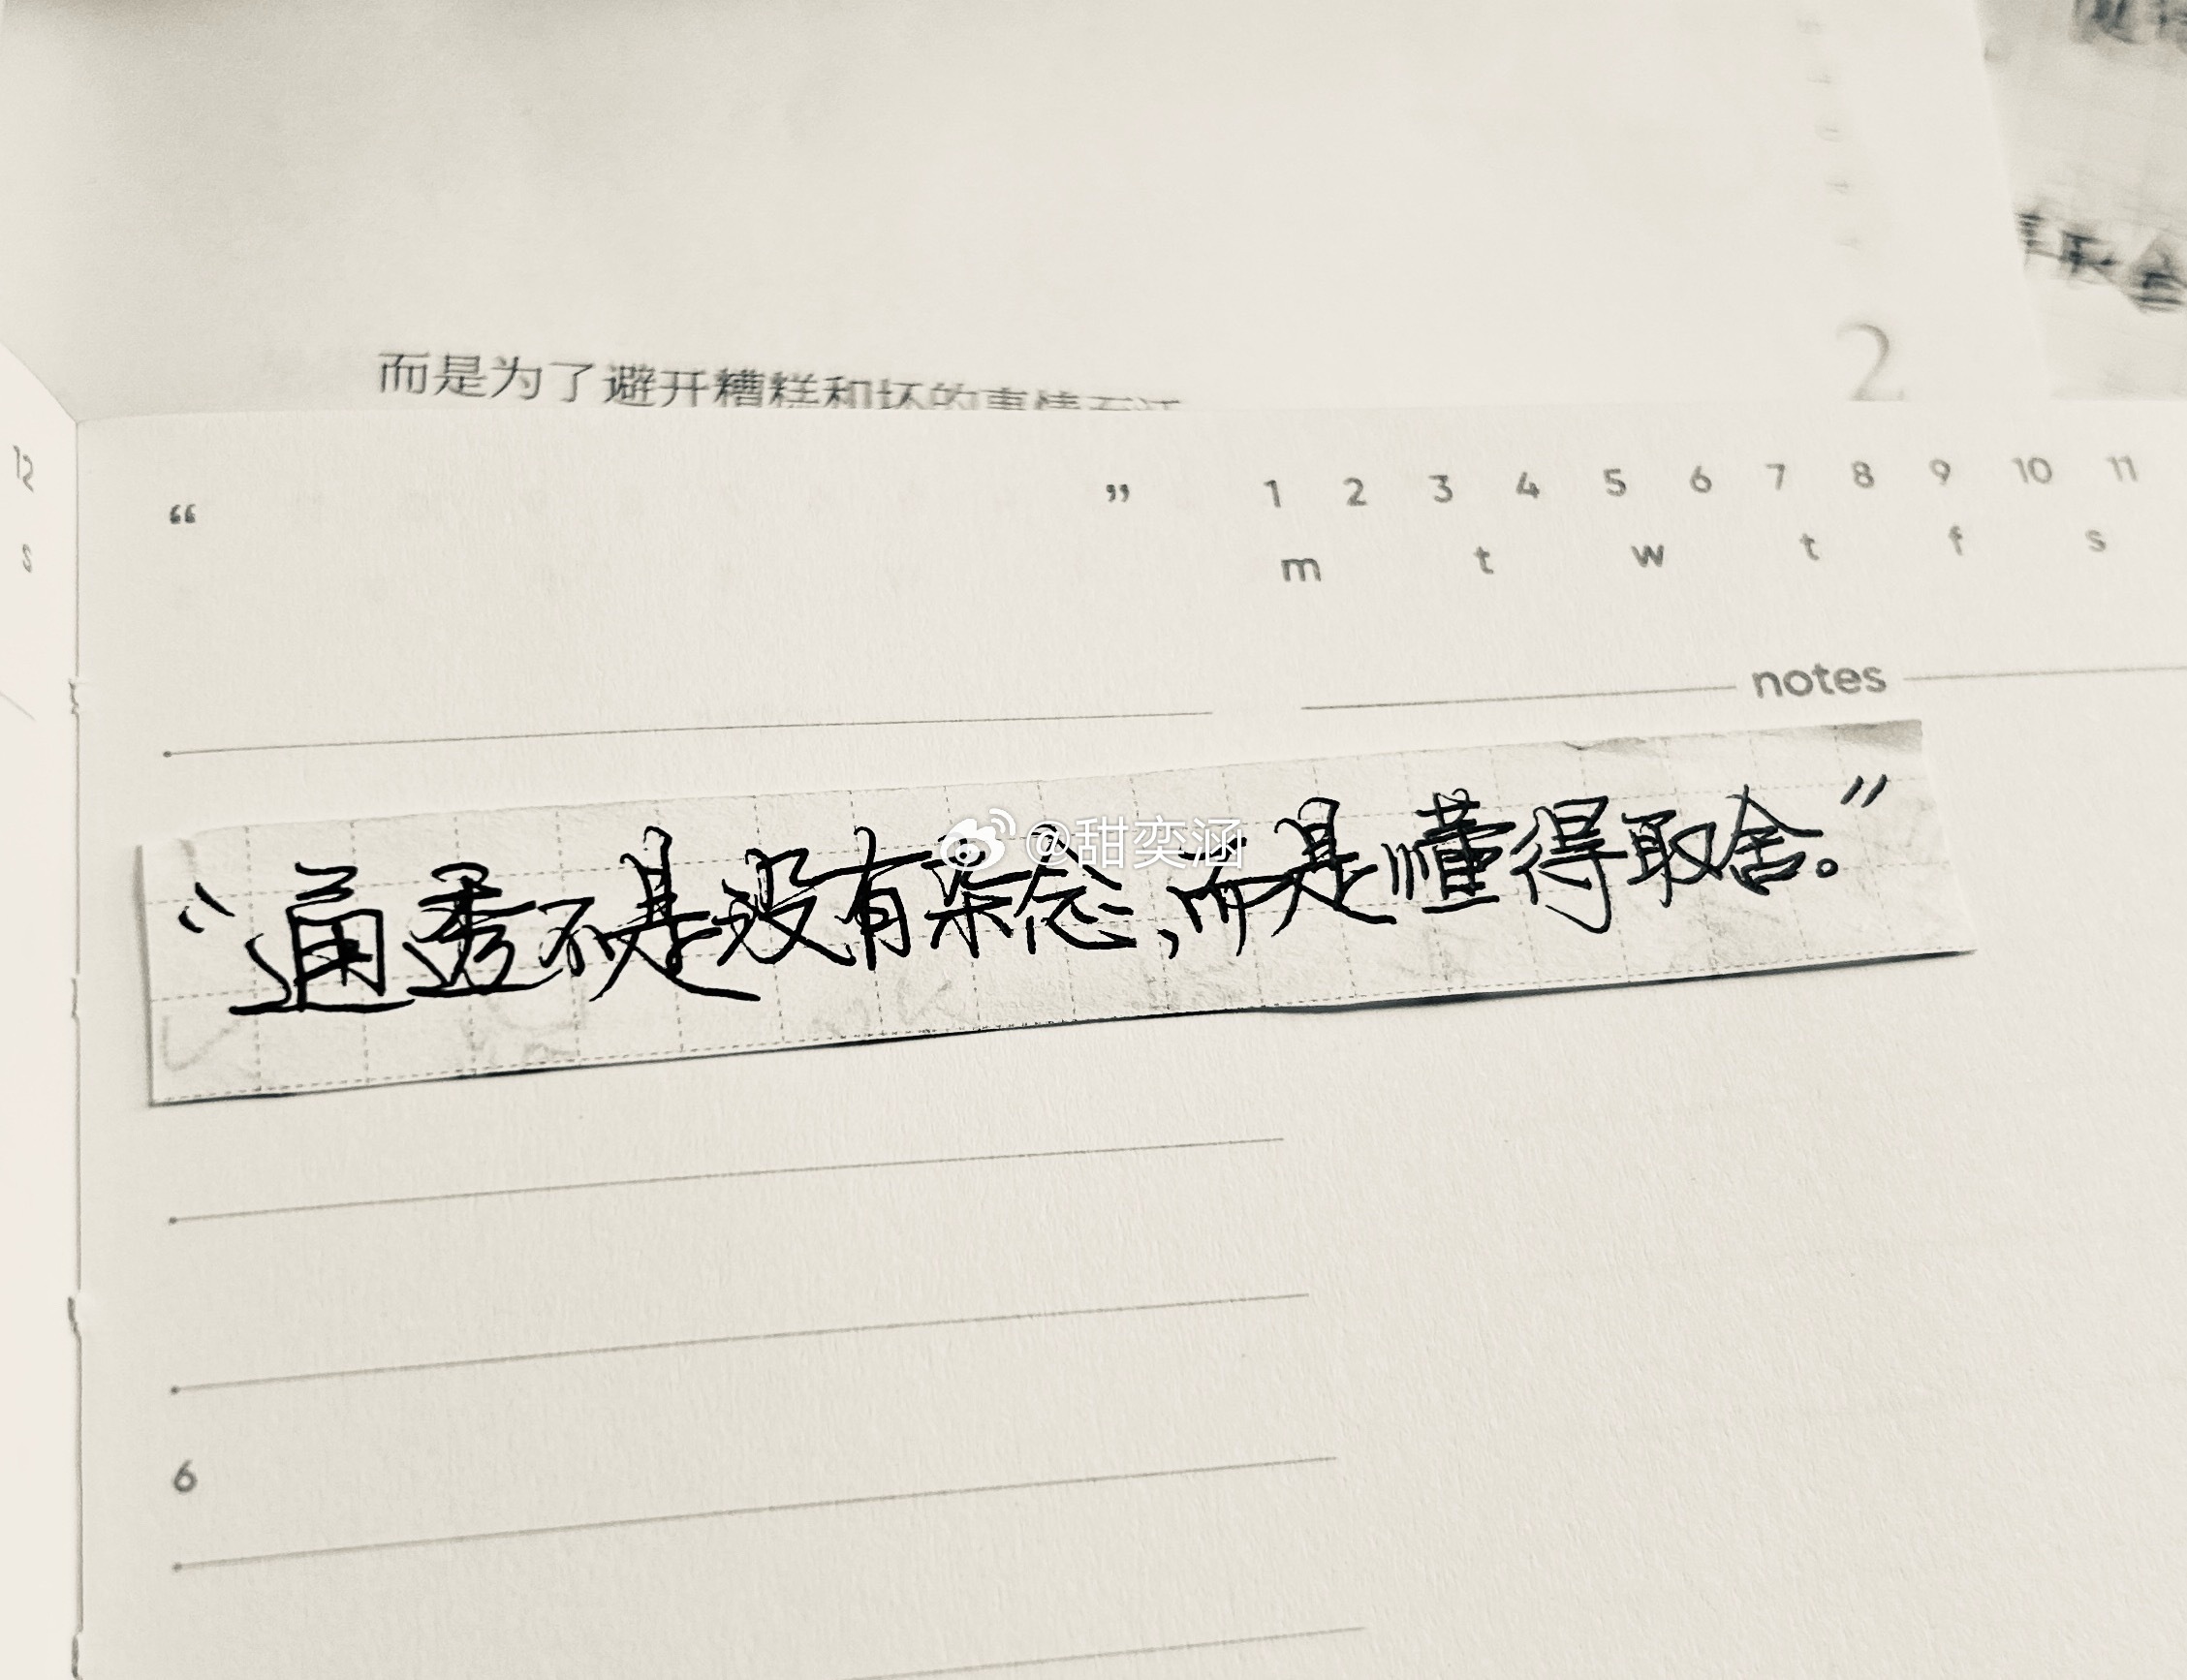 而是为了避开糟糕和坏的事情而活
取舍
2
12
s
“ ” 1 2 3 4 5 6 7 8 9 10 11
m t w t f s
notes
“通透不是没有杂念,而是懂得取舍。”
@甜奕涵
6